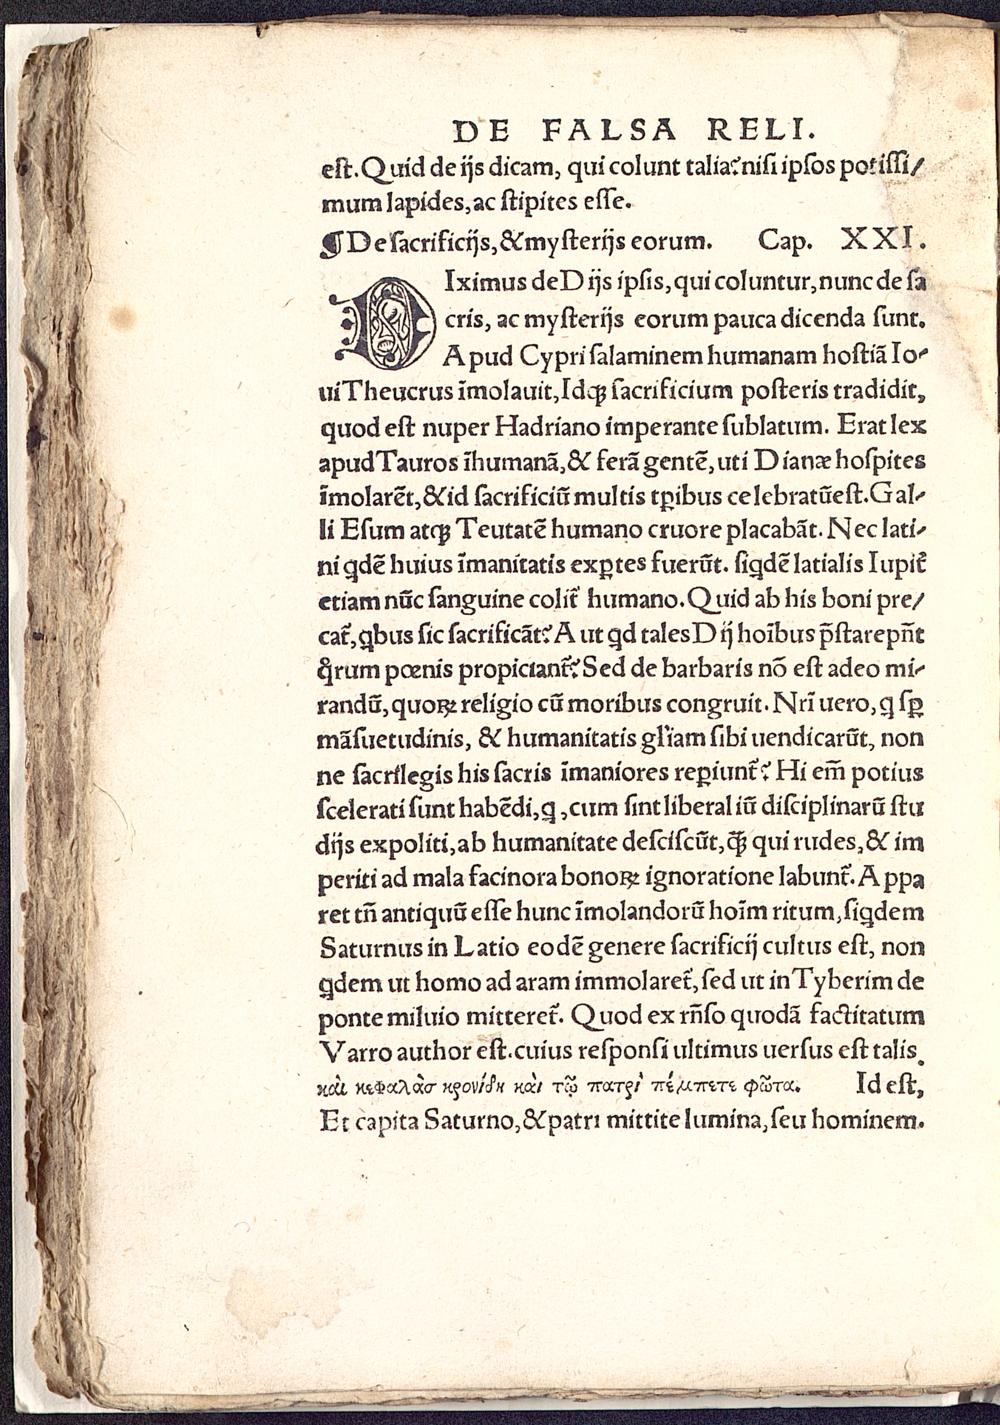 DE FALSA RELI.
est. Quid de ijs dicam, qui colunt talia? nisi ipsos potissi/
mum lapides, ac stipites esse.
¶ De sacrificijs, & mysterijs eorum. Cap. XXI.
DIximus de Dijs ipsis, qui coluntur, nunc de sa
cris, ac mysterijs eorum pauca dicenda sunt.
Apud Cypri salaminem humanam hostiã Io-
ui Theucrus ĩmolauit, Idqȝ sacrificium posteris tradidit,
quod est nuper Hadriano imperante sublatum. Erat lex
apud Tauros ĩhumanã, & ferã gentẽ, uti Dianæ hospites
ĩmolarẽt, & id sacrificiũ multis tꝑibus celebratũ est. Gal-
li Esum atqȝ Teutatẽ humano cruore placabãt. Nec lati-
ni qdẽ huius ĩmanitatis exꝑtes fuerũt. siqdẽ latialis Iupit̃
etiam nũc sanguine colit̃ humano. Quid ab his boni pre/
cat̃, qbus sic sacrificãt? Aut qd tales Dij hoĩbus p̃stare pñt
q̃rum pœnis propiciant̃? Sed de barbaris nõ est adeo mi-
randũ, quoꝝ religio cũ moribus congruit. Nrĩ uero, q sꝑ
mãsuetudinis, & humanitatis gl̃iam sibi uendicarũt, non
ne sacrilegis his sacris ĩmaniores reꝑiunt̃? Hi em̃ potius
scelerati sunt habẽdi, q, cum sint liberaliũ disciplinarũ stu
dijs expoliti, ab humanitate desciscũt, q̃ȝ qui rudes, & im
periti ad mala facinora bonoꝝ ignoratione labunt̃. Appa
ret tñ antiquũ esse hunc ĩmolandorũ hoĩm ritum, siqdem
Saturnus in Latio eodẽ genere sacrificij cultus est, non
qdem ut homo ad aram immolaret̃, sed ut in Tyberim de
ponte miluio mitteret̃. Quod ex rñso quodã factitatum
Varro author est. cuius responsi ultimus uersus est talis.
κὰι κεφαλὰσ κρονίδη κὰι τῷ πατρὶ πέμπετε φῶτα. Id est,
Et capita Saturno, & patri mittite lumina, seu hominem.